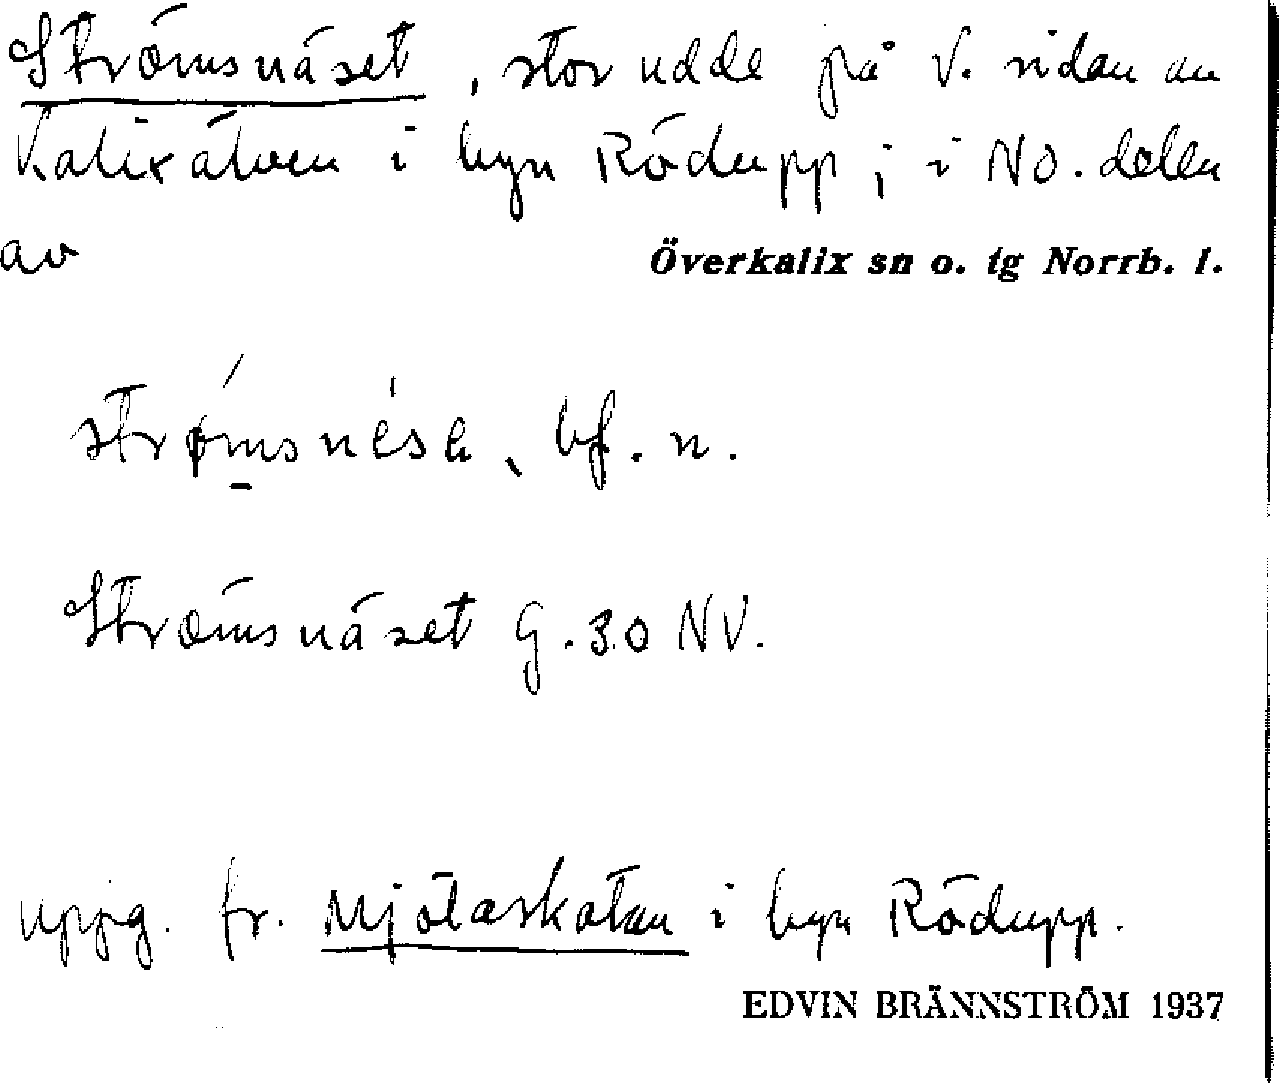 Strömsnäset, stor udde på V. sidan av
Kalixälven i byn Rödupp; i NO. delen
av Överkalix sn o. tg Norrb. l.
bf. n.
Strömsnäset G. 30 NV.
uppg. fr. Mjölaskatan i byn Rödupp.
EDVIN BRÄNNSTRÖM 1937